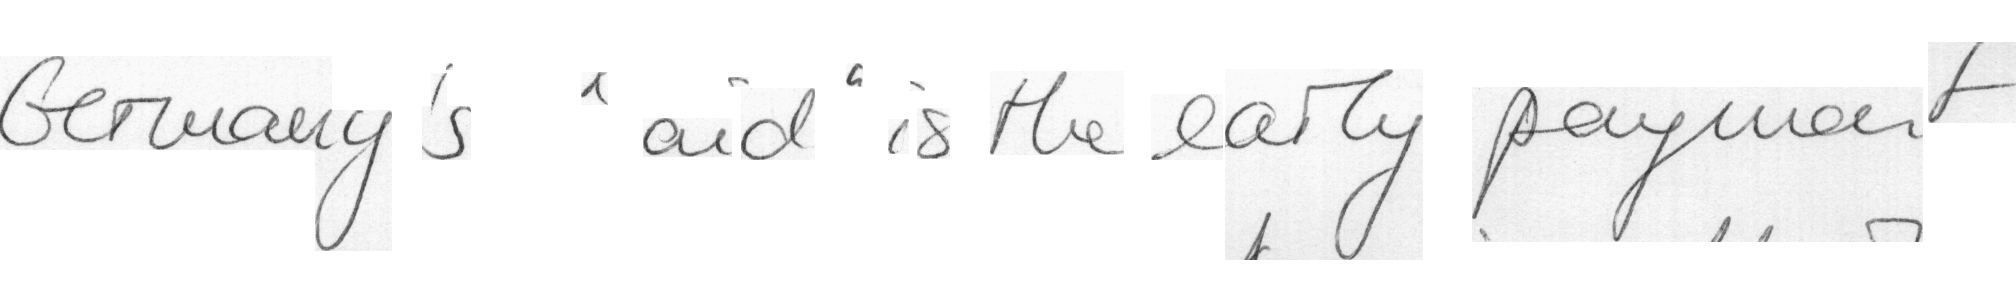 Germany's "aid" is the early payment